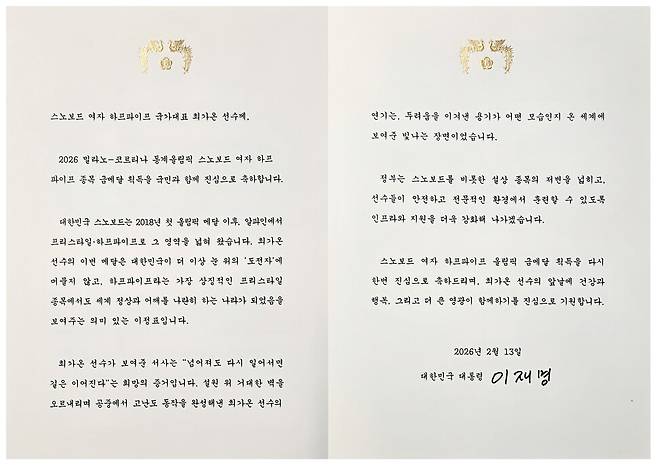 스노보드 여자 하프파이프 국가대표 최가온 선수께,
2026 밀라노-코르티나 동계올림픽 스노보드 여자 하프
파이프 종목 금메달 획득을 국민과 함께 진심으로 축하합니다.
대한민국 스노보드는 2018년 첫 올림픽 메달 이후, 알파인에서
프리스타일·하프파이프로 그 영역을 넓혀 왔습니다. 최가온
선수의 이번 메달은 대한민국이 더 이상 눈 위의 '도전자'에
머물지 않고, 하프파이프라는 가장 상징적인 프리스타일
종목에서도 세계 정상과 어깨를 나란히 하는 나라가 되었음을
보여주는 의미 있는 이정표입니다.
최가온 선수가 보여준 서사는 "넘어져도 다시 일어서면
길은 이어진다"는 희망의 증거입니다. 설원 위 거대한 벽을
오르내리며 공중에서 고난도 동작을 완성해낸 최가온 선수의
연기는, 두려움을 이겨낸 용기가 어떤 모습인지 온 세계에
보여준 빛나는 장면이었습니다.
정부는 스노보드를 비롯한 설상 종목의 저변을 넓히고,
선수들이 안전하고 전문적인 환경에서 훈련할 수 있도록
인프라와 지원을 더욱 강화해 나가겠습니다.
스노보드 여자 하프파이프 올림픽 금메달 획득을 다시
한번 진심으로 축하드리며, 최가온 선수의 앞날에 건강과
행복, 그리고 더 큰 영광이 함께하기를 진심으로 기원합니다.
2026년 2월 13일
대한민국 대통령 이재명